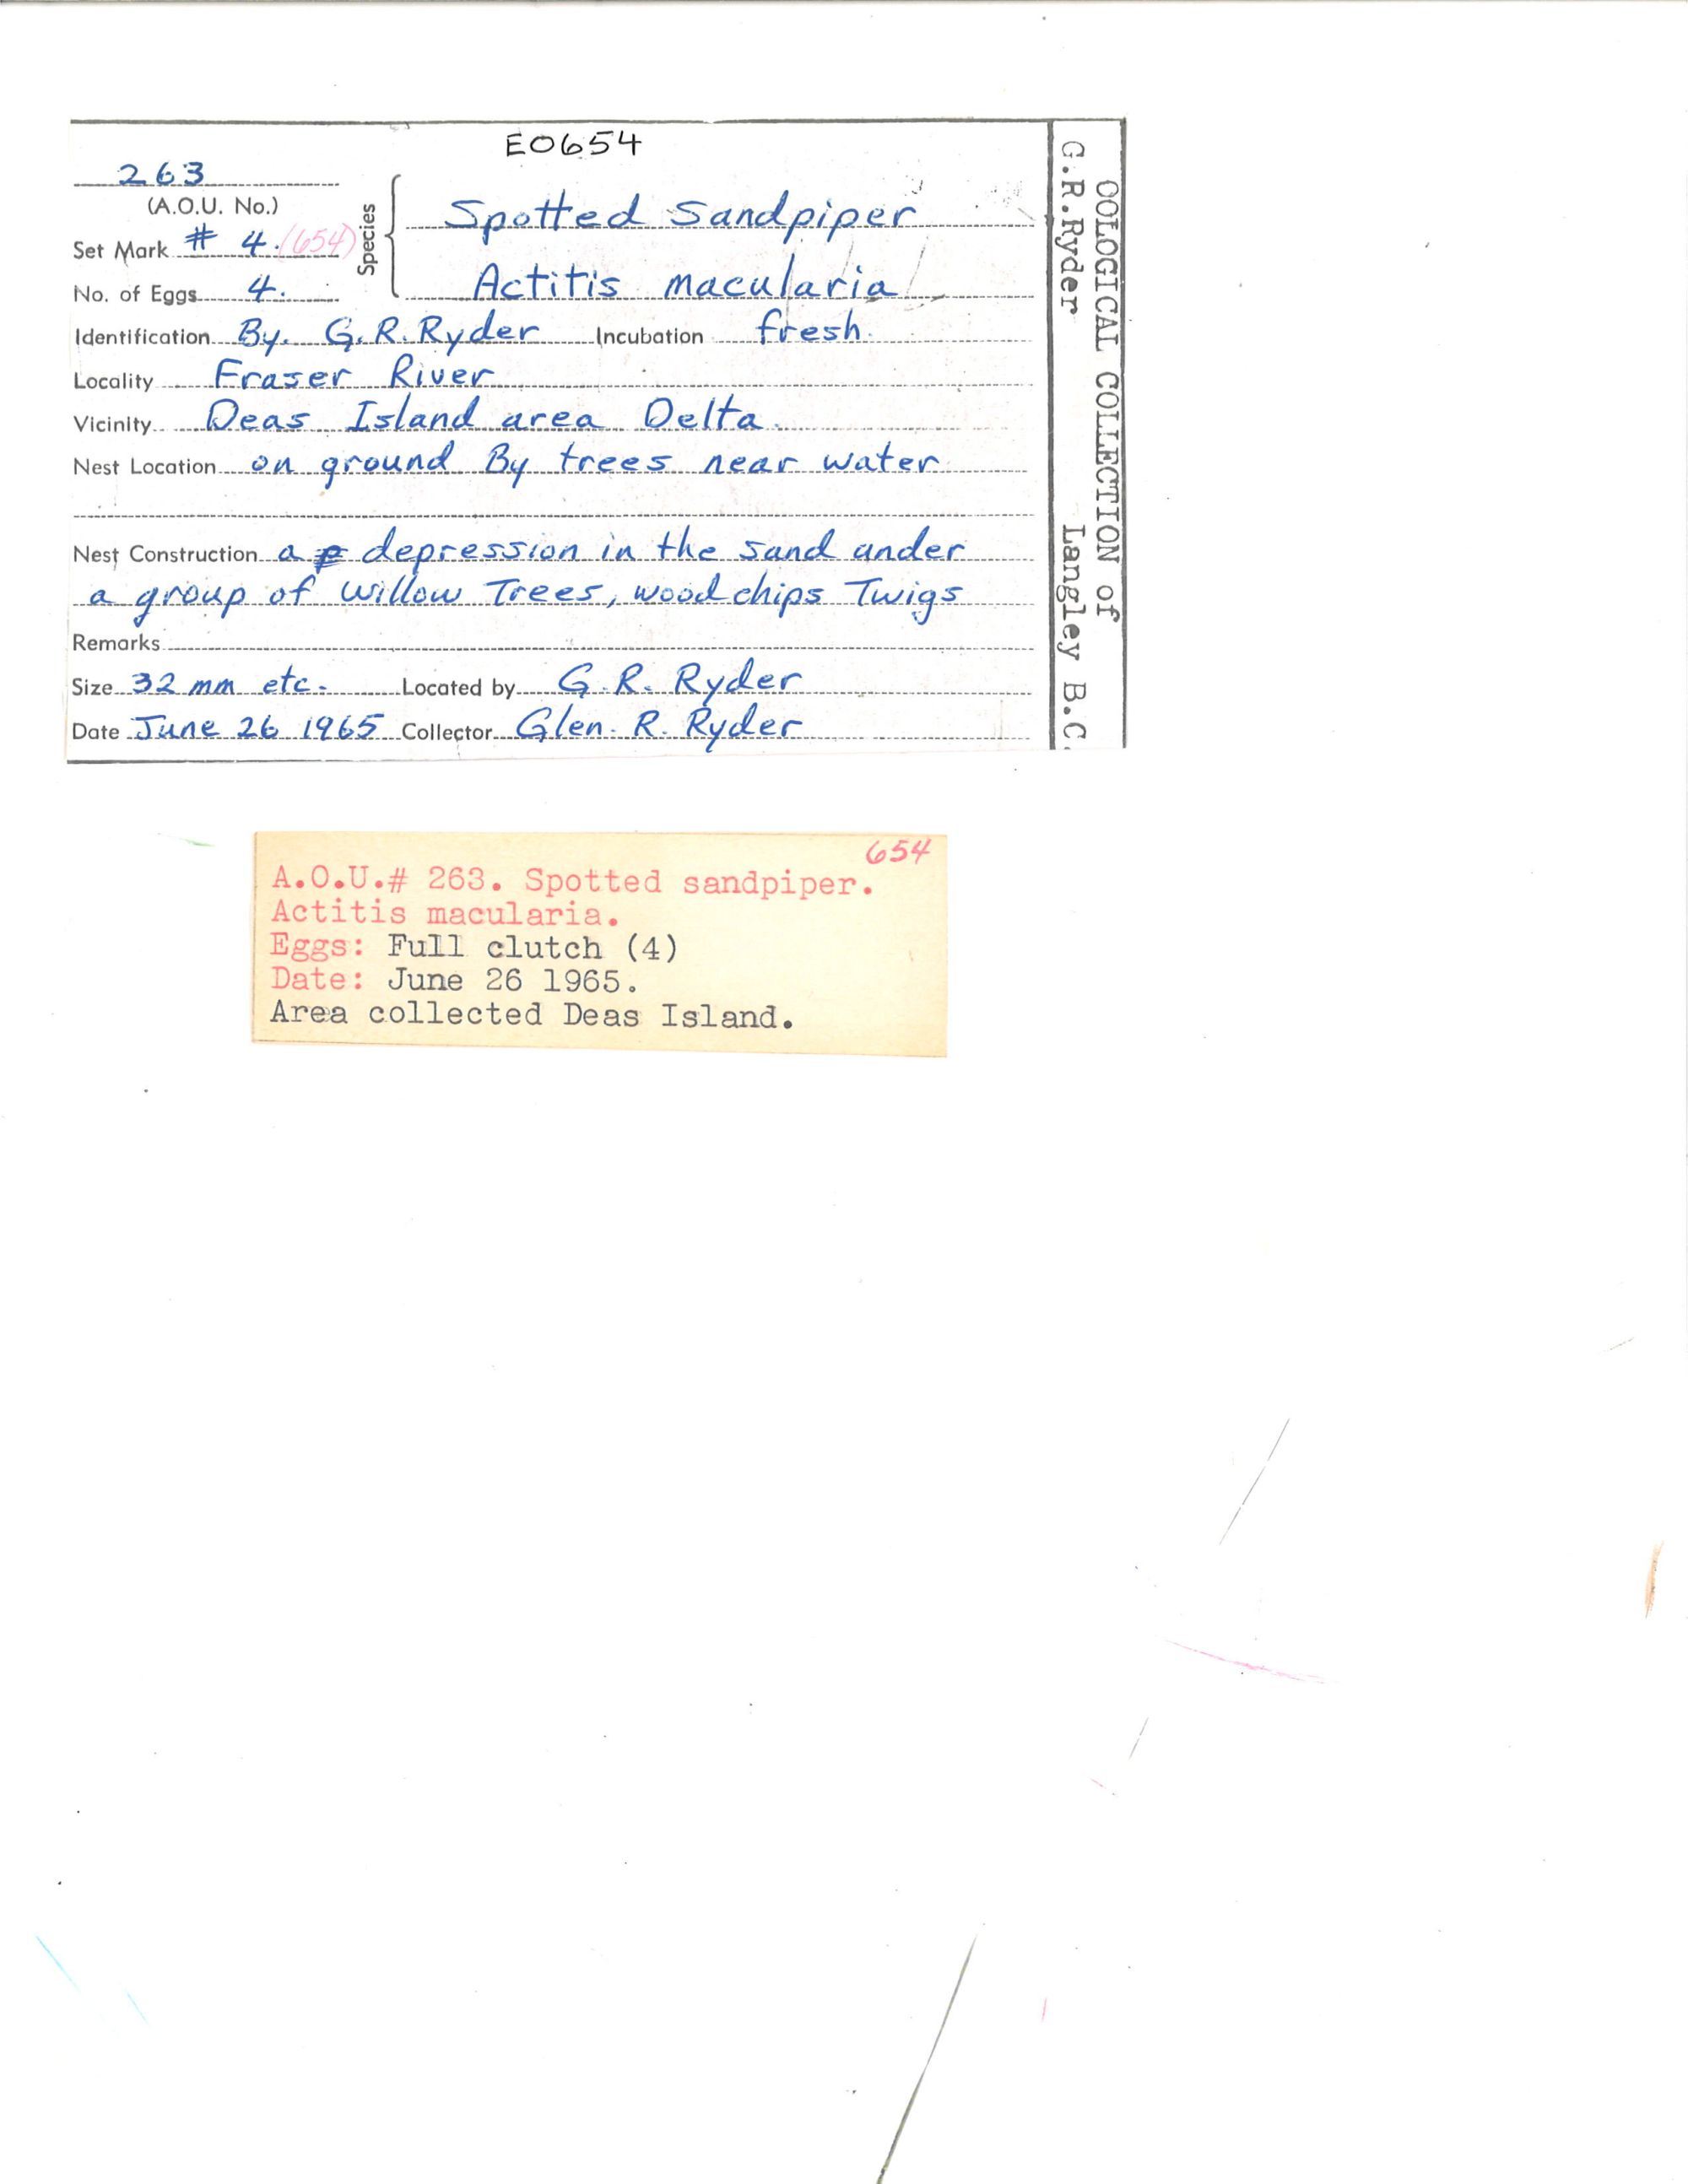 E0654
263
(A.O.U. No.)
Species
Spotted Sandpiper
Set Mark # 4. (654)
Actitis macularia
No. of Eggs 4.
Identification By. G.R. Ryder Incubation fresh.
Locality Fraser River
Vicinity Deas Island area Delta.
Nest Location on ground By trees near water
Nest Construction a depression in the sand under
a group of willow Trees, wood chips Twigs
Remarks
Size 32 mm etc. Located by G. R. Ryder
Date June 26 1965 Collector Glen. R. Ryder
OOLOGICAL COLLECTION of
G.R.Ryder Langley B.C.
654
A.O.U.# 263. Spotted sandpiper.
Actitis macularia.
Eggs: Full clutch (4)
Date: June 26 1965.
Area collected Deas Island.